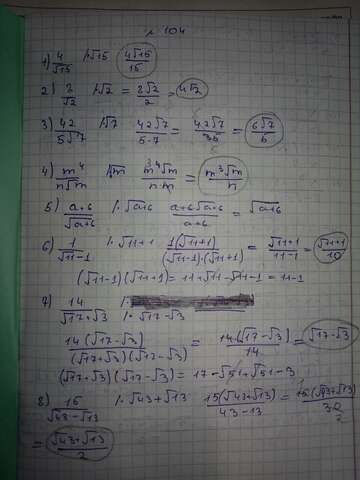 № 104
1) 4/√15 /·√15 4√15/15
2) 8/√2 /·√2 = 8√2/2 = 4√2
3) 42/5√7 /·√7 42√7/5·7 = 42√7/35 = 6√7/5
4) m⁴/n√m /·√m m⁴√m/n·m = m³√m/n
5) a+6/√a+6 /·√a+6 a+6√a+6/a+6 = √a+6
6) 1/√11-1 /·√11+1 1(√11+1)/(√11-1)·(√11+1) = √11+1/11-1 = √11+1/10
(√11-1)(√11+1) = 11+√11-√11-1 = 11-1
7) 14/√17+√3 /·√17-√3
14(√17-√3)/(√17+√3)(√17-√3) = 14·(√17-√3)/14 = √17-√3
(√17+√3)(√17-√3) = 17-√51+√51-3
8) 15/√43-√13 /·√43+√13 15(√43+√13)/43-13 = 15(√43+√13)/30 2
= √43+√13/2